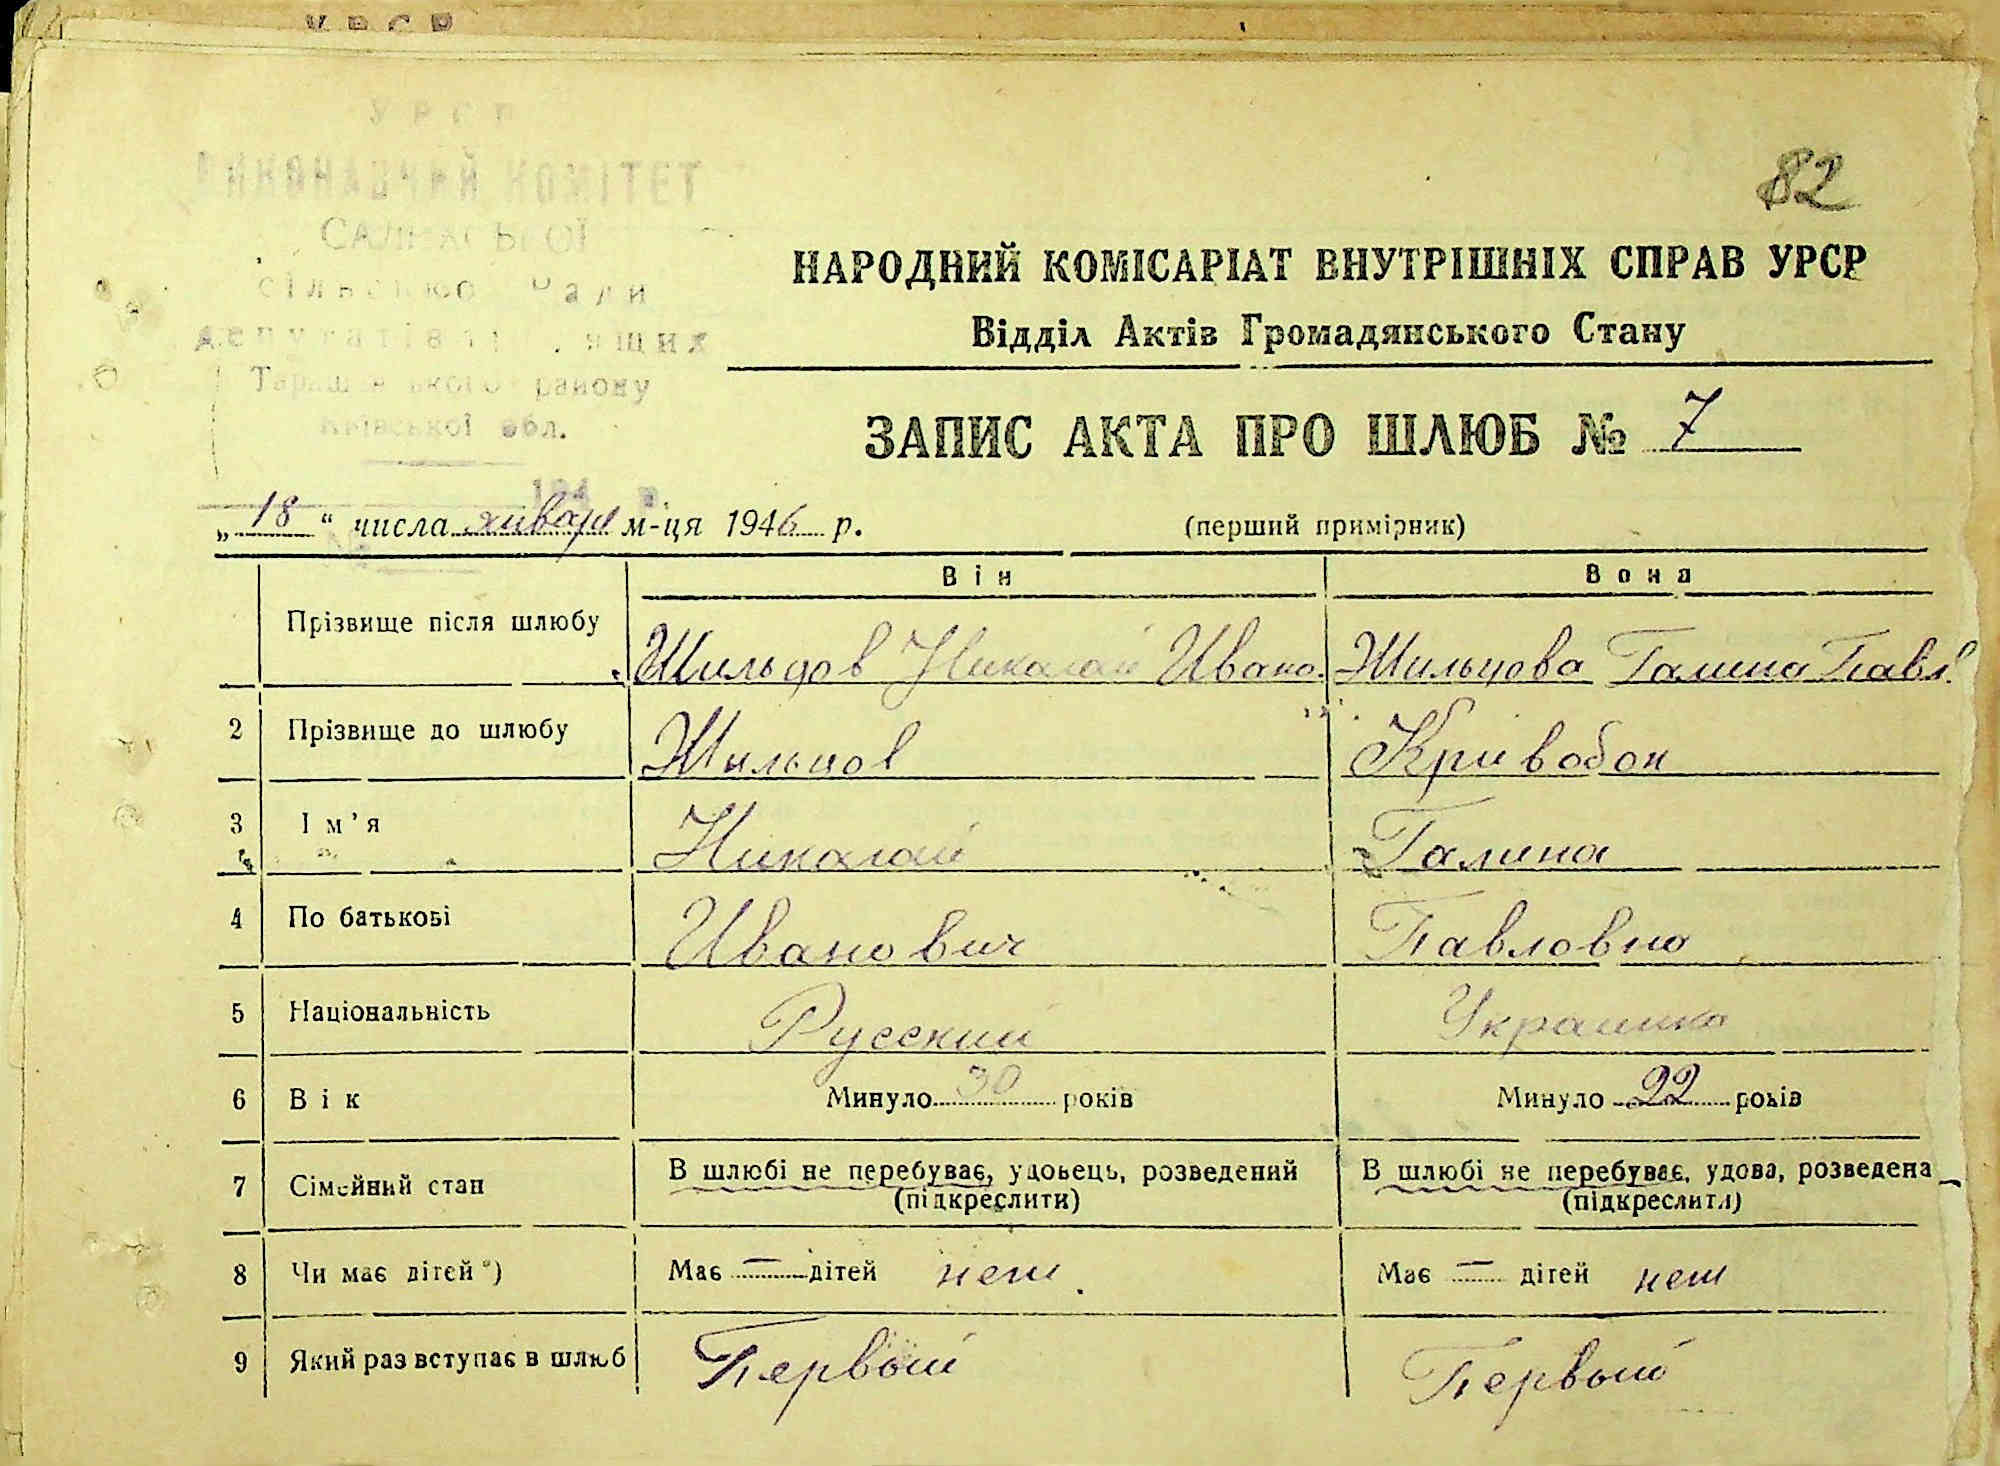 УРСР
УРСР
ВИКОНАВЧИЙ КОМІТЕТ
сільської Ради
депутатів трудящих
Таращанського району
Київської обл.
194 р.
82
НАРОДНИЙ КОМІСАРІАТ ВНУТРІШНІХ СПРАВ УРСР
Відділ Актів Громадянського Стану
ЗАПИС АКТА ПРО ШЛЮБ № 7
„18“ числа января м-ця 1946 р. (перший примірник)
Він Вона
Прізвище після шлюбу Жильцов Николай Ивано. Жильцова Галина Павл.
2 Прізвище до шлюбу Жильцов Кривобок
3 Ім'я Николай Галина
4 По батькові Иванович Павловна
5 Національність Русский Украинка
6 Вік Минуло 30 років Минуло 22 років
7 Сімейний стан В шлюбі не перебуває, удовець, розведений (підкреслити) В шлюбі не перебуває, удова, розведена (підкреслити)
8 Чи має дітей*) Має — дітей нет. Має — дітей нет
9 Який раз вступає в шлюб Первый Первый